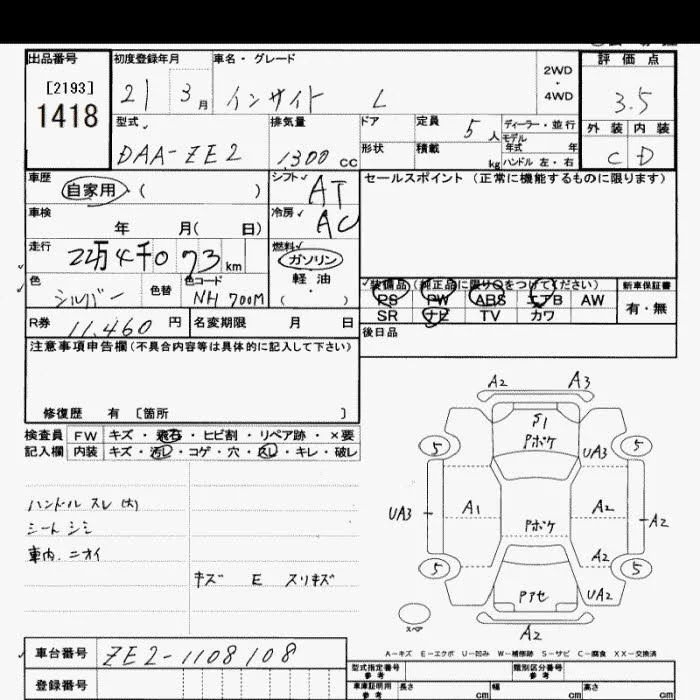 出品番号 初度登録年月 車名・グレード 2WD・4WD 評価点
[2193]
1418
21 3月 インサイト L 3.5
型式 排気量 ドア 定員 5人 ディーラー・並行 外装 内装
モデル年式 年
DAA-ZE2 1300cc 形状 積載 kg ハンドル 左・右 C D
車歴 自家用・( ) シフト AT セールスポイント (正常に機能するものに限ります)
車検 年 月( 日) 冷房 AC
走行 22万4千073km 燃料 ガソリン・軽油・( )
装備品(純正品に限り○をつけてください) 新車保証書
色 シルバー 色替 色コード NH700M PS PW ABS エアB AW 有・無
SR ナビ TV カワ
R券 11,460円 名変期限 月 日
後日品
注意事項申告欄(不具合内容等は具体的に記入して下さい)
修復歴 有 [箇所 ]
検査員 FW キズ・飛石・ヒビ割・リペア跡・×要
記入欄 内装 キズ・汚レ・コゲ・穴・スレ・キレ・破レ
ハンドル スレ(大)
シート シミ
車内 ニオイ
キズ E スリキズ
A2 A3
S1
Pボケ
5 UA3 5
UA3 A1 A2 A2
Pボケ
A2
5 5
Pアセ UA2
スペア
A2
A-キズ E-エクボ U-凹み W-補修跡 S-サビ C-腐食 XX-交換済
車台番号 ZE2-1108108
型式指定番号 参考 類別区分番号 参考
登録番号
車庫証明用 参考 長さ cm 幅 cm 高さ cm